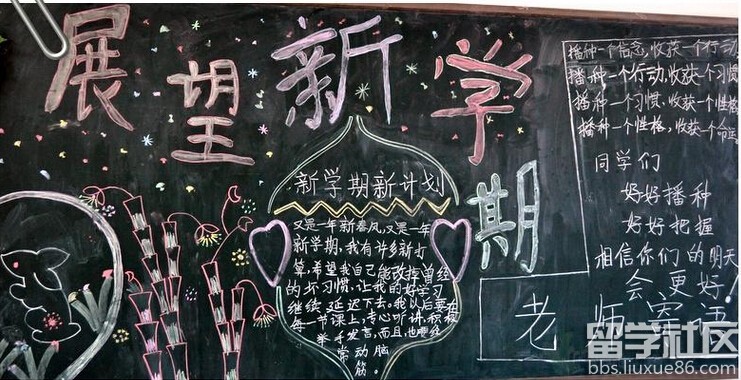 展望新学期
新学期新计划
又是一年新春风,又是一年
新学期,我有许多新打
算,希望我自己能改掉曾经
的坏习惯,让我的好学习
继续延迟下去。我以后要在
每一节课上,专心听讲,积极
举手发言,而且也要经
常动脑
筋。
播种一个信念,收获一个行动,
播种一个行动,收获一个习惯
播种一个习惯,收获一个性格
播种一个性格,收获一个命运
同学们
好好播种
好好把握
相信你们的明天
会更好!
老师寄语
留学社区
bbs.liuxue86.com